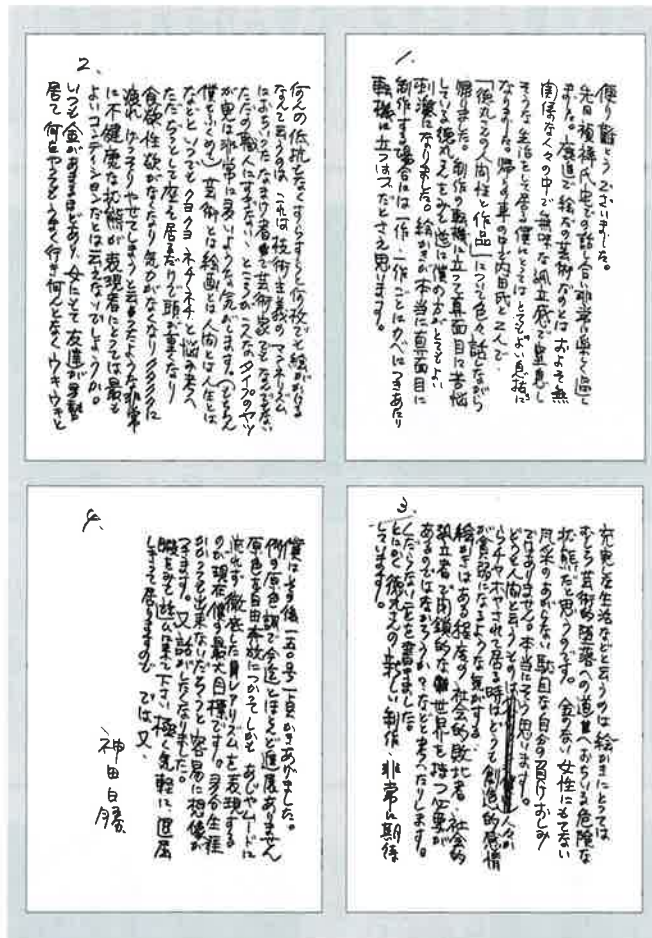 1.
便り有難うございました。
先日複禅氏宅での話し合い非常に楽しく過し
ました。鹿追で絵だの芸術だのとは およそ無
関係な人々の中で無味な孤立感で窒息し
そうな生活をして居る僕にとっては とてもよい息抜に
なりました。帰りの車の中で内田氏と二人で、
「徳丸さの人間性と作品」について色々話しながら
帰りました。制作の転機に立って真面目に苦悩
している徳丸さんをみて逆に僕の方がとてもよい
刺激になりました。絵かきが本当に真面目に
制作する場合には一作、一作ごとにカベにつきあたり
転機に立つはズだとさえ思います。
2、
何んの低抗もなくすらすらと何枚でも絵がかける
なんて云うのは、これは技術主義のマンネリズム
におちいったなまけ者で芸術家でもなんでもない
ただの職人にすぎない、ところがこんなタイプのヤツ
が実は非常に多いような気がします。(もちろん
僕もふくめ) 芸術とは絵画とは人間とは人生とは
などといつでもクヨクヨ ネチネチと悩み考へ
ただじっとして座って居るだけで頭が重くなり
食欲性欲がなくなり気力がなくなりクタクタに
疲れ けっそりやせてしまうと云ったような非常
に不健康な状態が表現者にとっては最も
よいコンディションだとは云えないでしょうか。
いつも金があまるほどあり、女にもて友達が多勢
居て何をやってもうまく行き何んとなくウキウキと
3
充実した生活などと云うのは絵かきにとっては
むしろ芸術的堕落への道へおちいる危険な
状態だと思うのです。金のない女性にもてない
風采のあがらない駄目な自分の負けおしみ
ではありません。本当にそう思います。
どうも人間と云うものは 人々か
らチヤホヤされて居る時はどうも創造的感情
が貧弱になるような気がする。
絵かきはある程度の社会的敗北者、社会的
孤立者で閉鎖的な世界を持つ必要が
あるのではなかろうか?などと考へたりします。
くだらないことを書きました。
とにかく徳丸さんの新しい制作、非常に期待
しています。
4、
僕はその後一五〇号一点かきあげました。
例の原色調で今迄とほとんど進展ありません
原色を自由奔放につかってしかもあじやムードに
流れず徹底したレアリズムを表現する
のが現在僕の最大目標です。多分生涯
かかっても出来ないだろうと容易に想像が
つきます。又話がしたくなりました。
暇をみて遊びに来て下さい 極く気軽に、退屈
しきって居りますので では又、
神田日勝